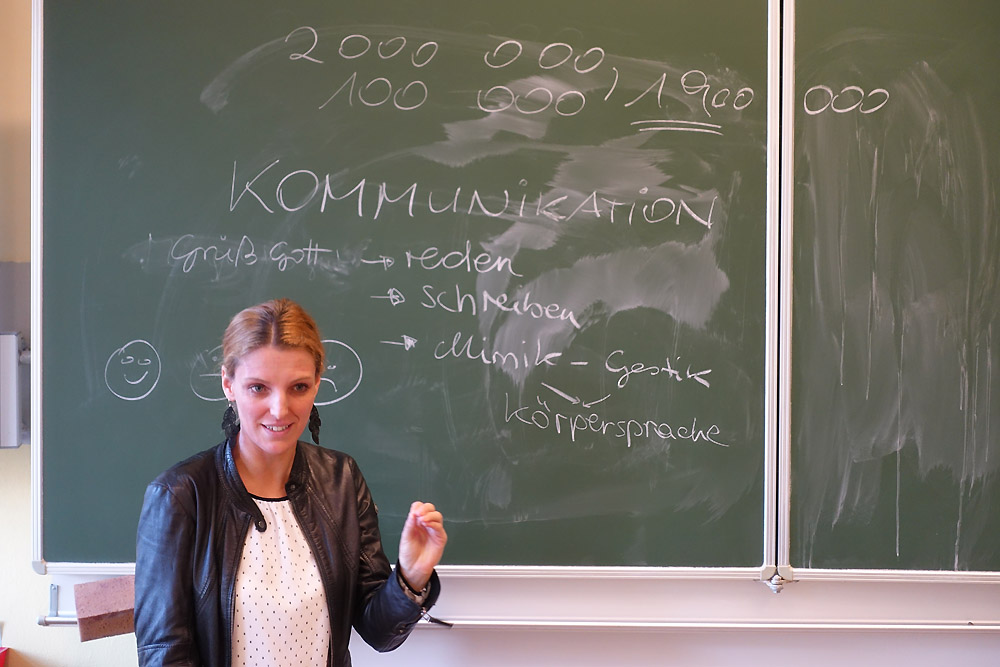 2 000 000,
100 000, 1.900 000
KOMMUNIKATION
! Grüß Gott → reden
→ schreiben
→ Mimik – Gestik
Körpersprache